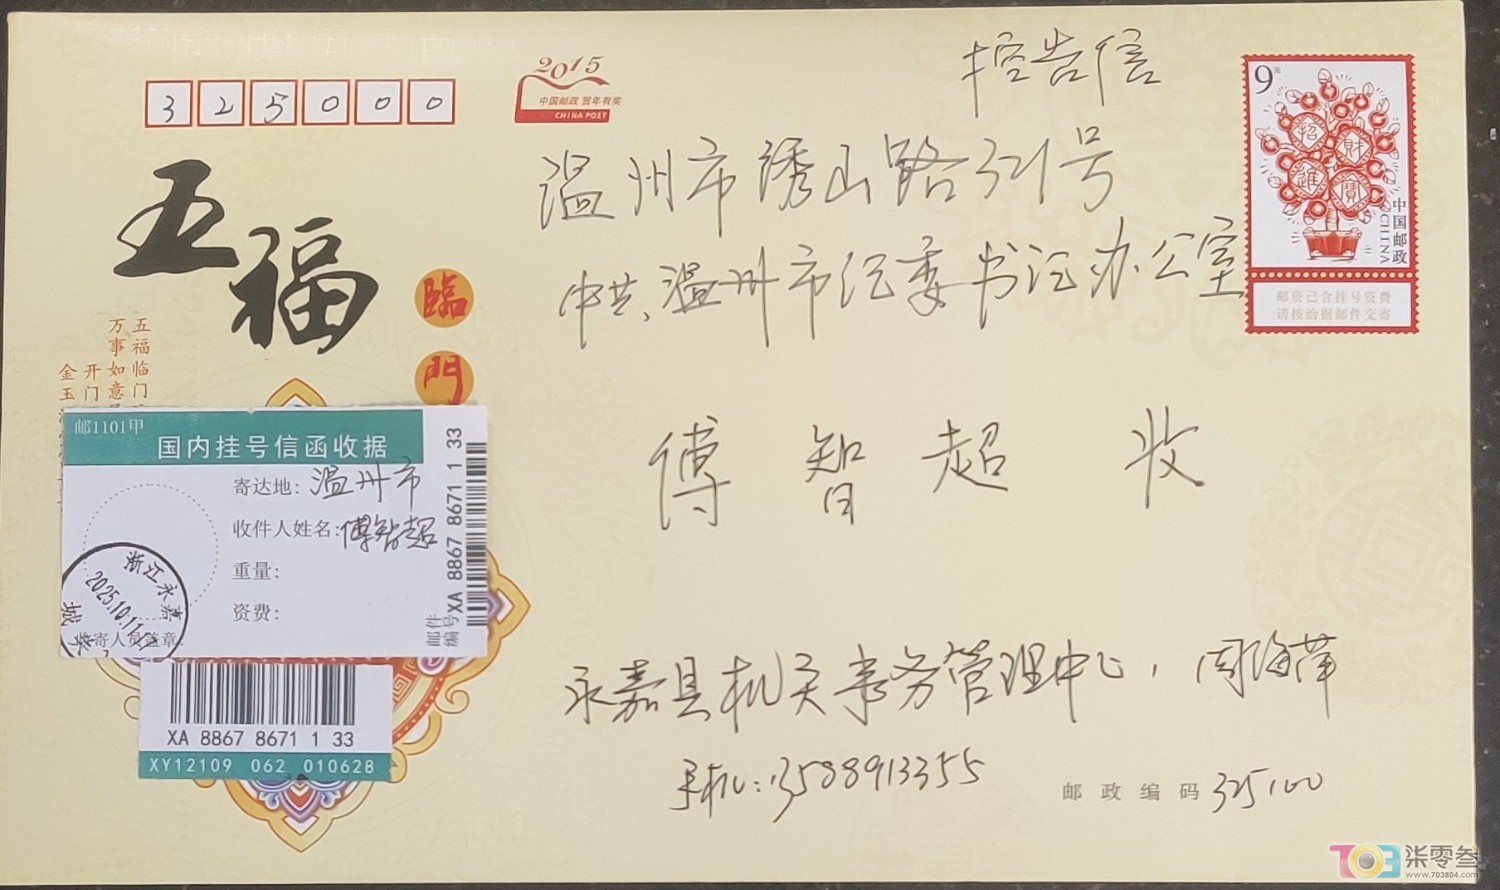 控告信
325000
2015
中国邮政 贺年有奖
CHINA POST
9元
招財
進寶
中国邮政
CHINA
邮资已含挂号资费
请按给据邮件交寄
温州市绣山路321号
中共温州市纪委书记办公室
傅智超 收
五福
臨門
五福临门
万事如意
开门
金玉
邮1101甲
国内挂号信函收据
寄达地：温州市
收件人姓名：傅智超
重量：
资费：
寄人员盖章：
邮件编号XA 8867 8671 1 33
浙江永嘉
2025.10.11
XA 8867 8671 1 33
XY12109 062 010628
永嘉县机关事务管理中心，周海萍
手机：13588913355
邮政编码 325100
703 柒零叁
www.703804.com